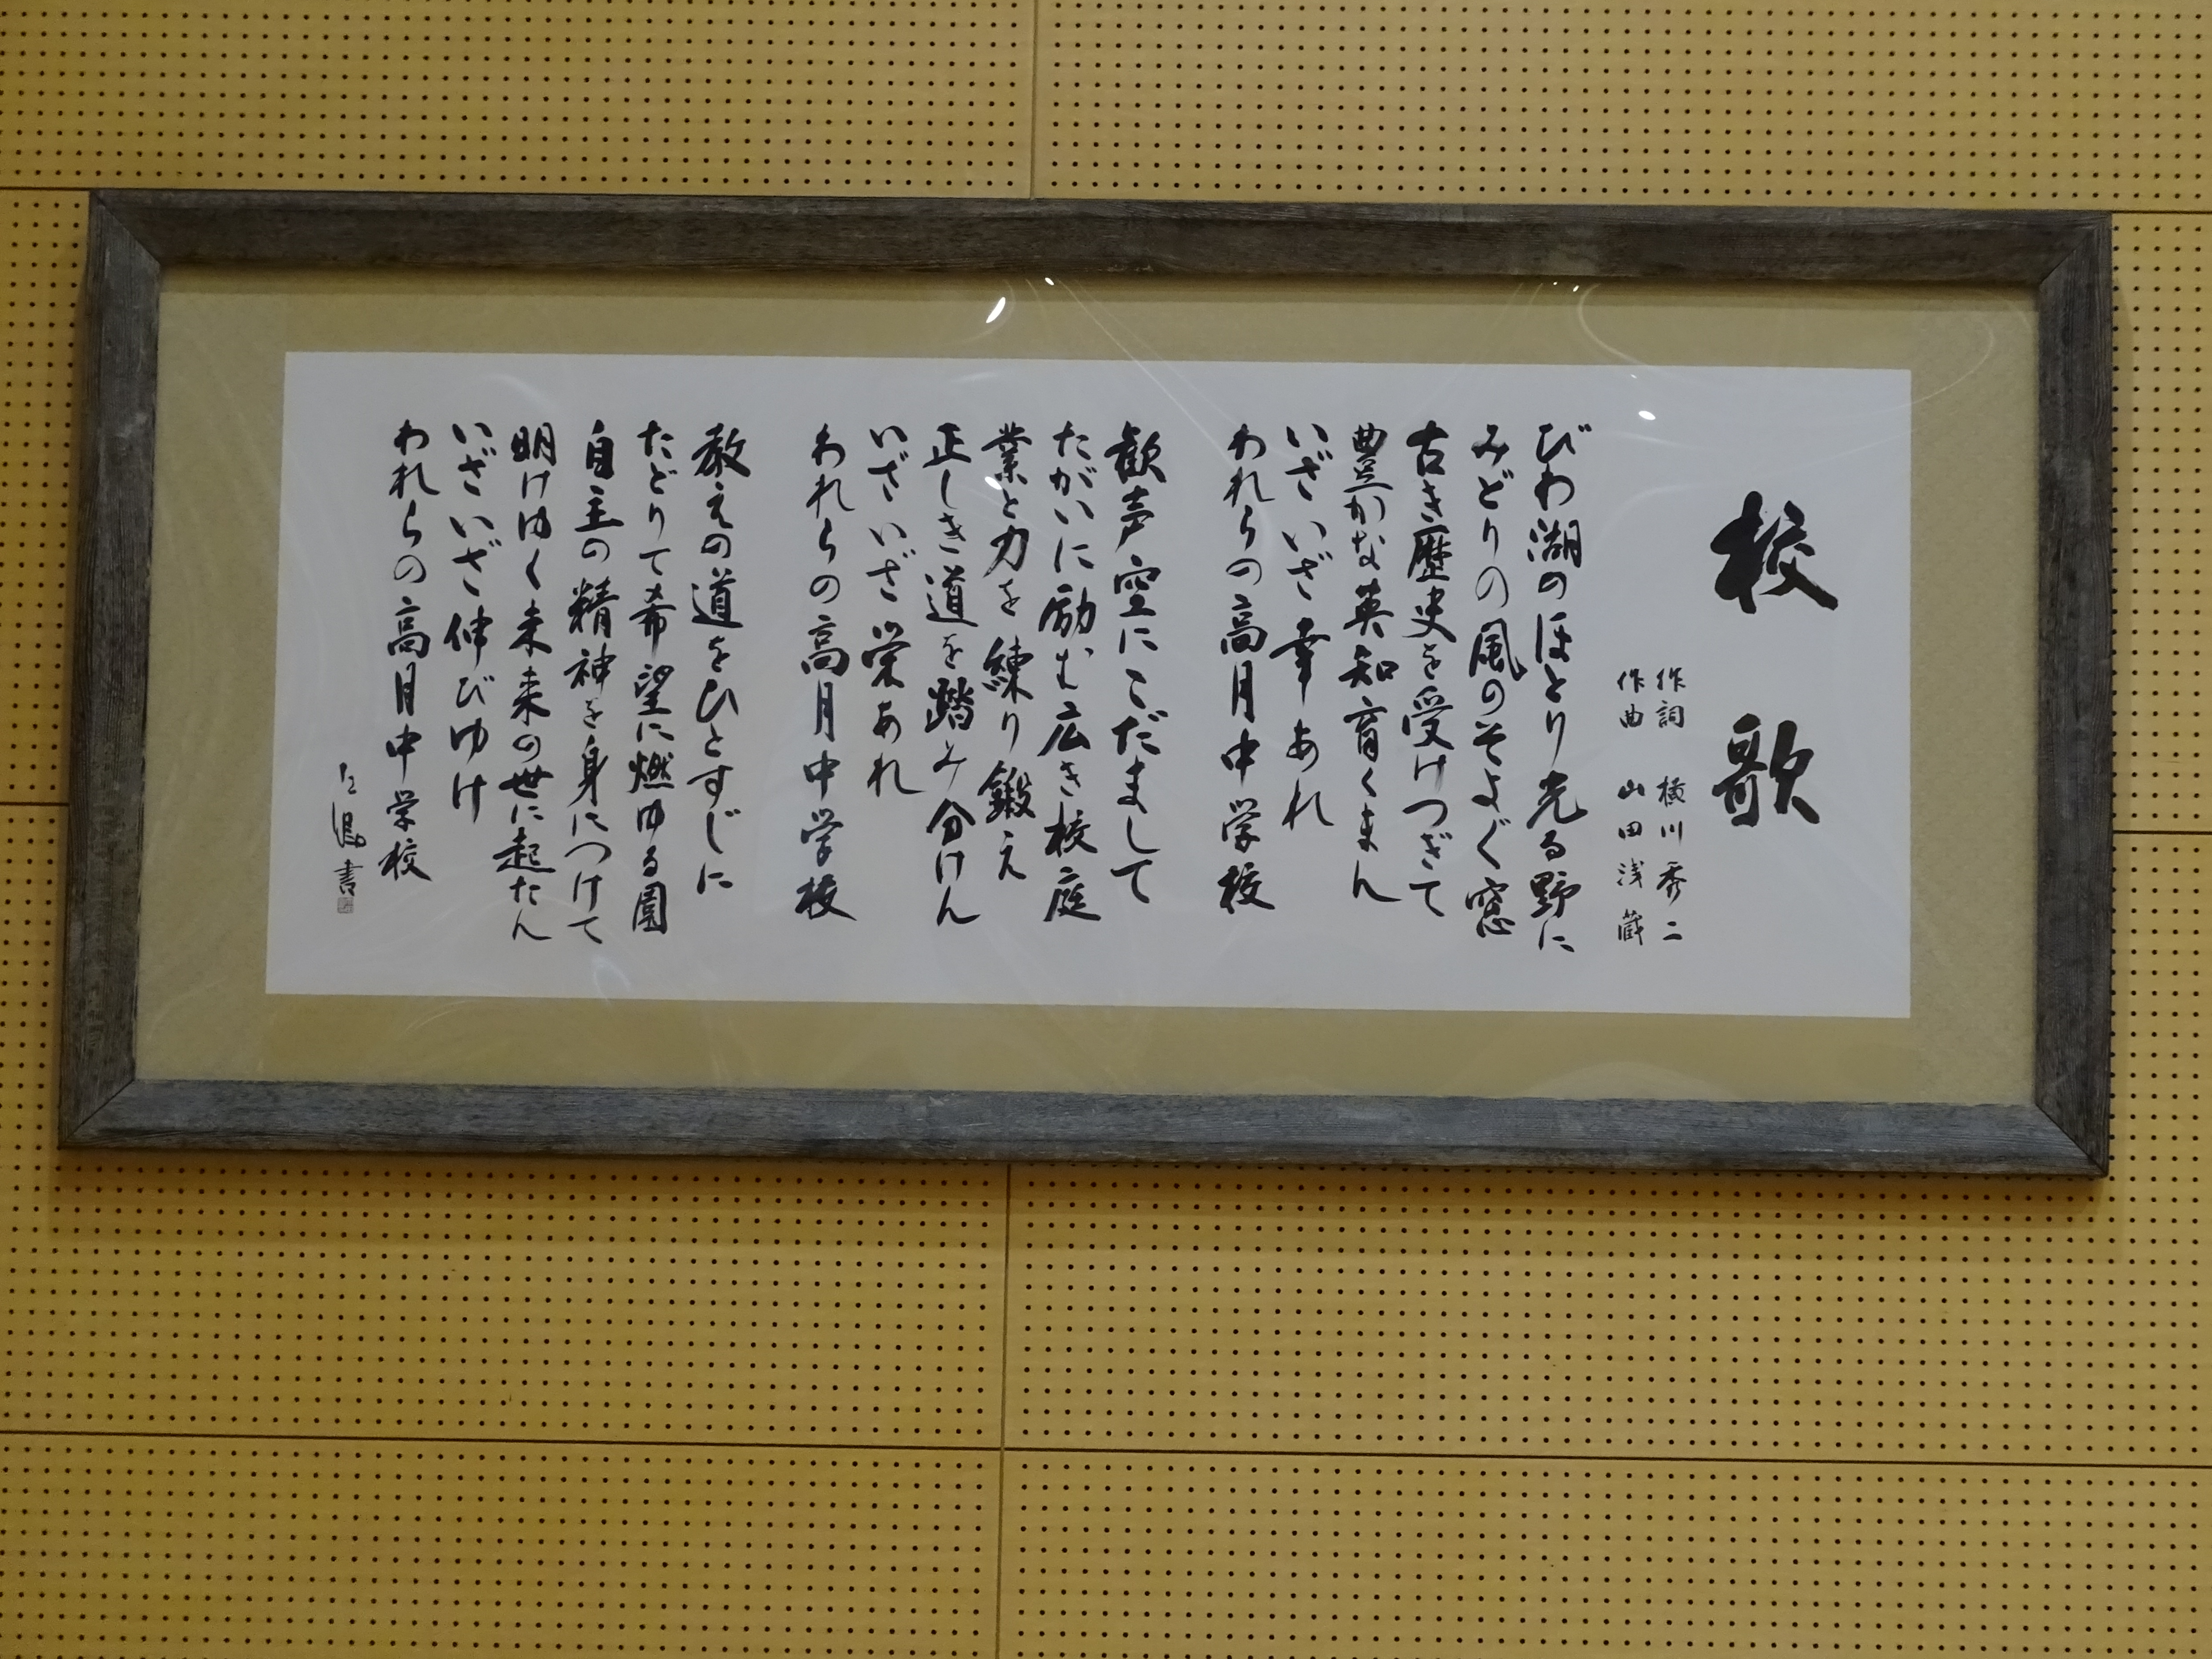 校歌
作詞 横川秀二
作曲 山田浅蔵
びわ湖のほとり光る野に
みどりの風のそよぐ窓
古き歴史を受けつぎて
豊かな英知育くまん
いざいざ幸あれ
われらの高月中学校
歓声空にこだまして
たがいに励む広き校庭
業と力を練り鍛え
正しき道を踏み分けん
いざいざ栄あれ
われらの高月中学校
教えの道をひとすじに
たどりて希望に燃ゆる園
自主の精神を身につけて
明けゆく未来の世に起たん
いざいざ伸びゆけ
われらの高月中学校
書